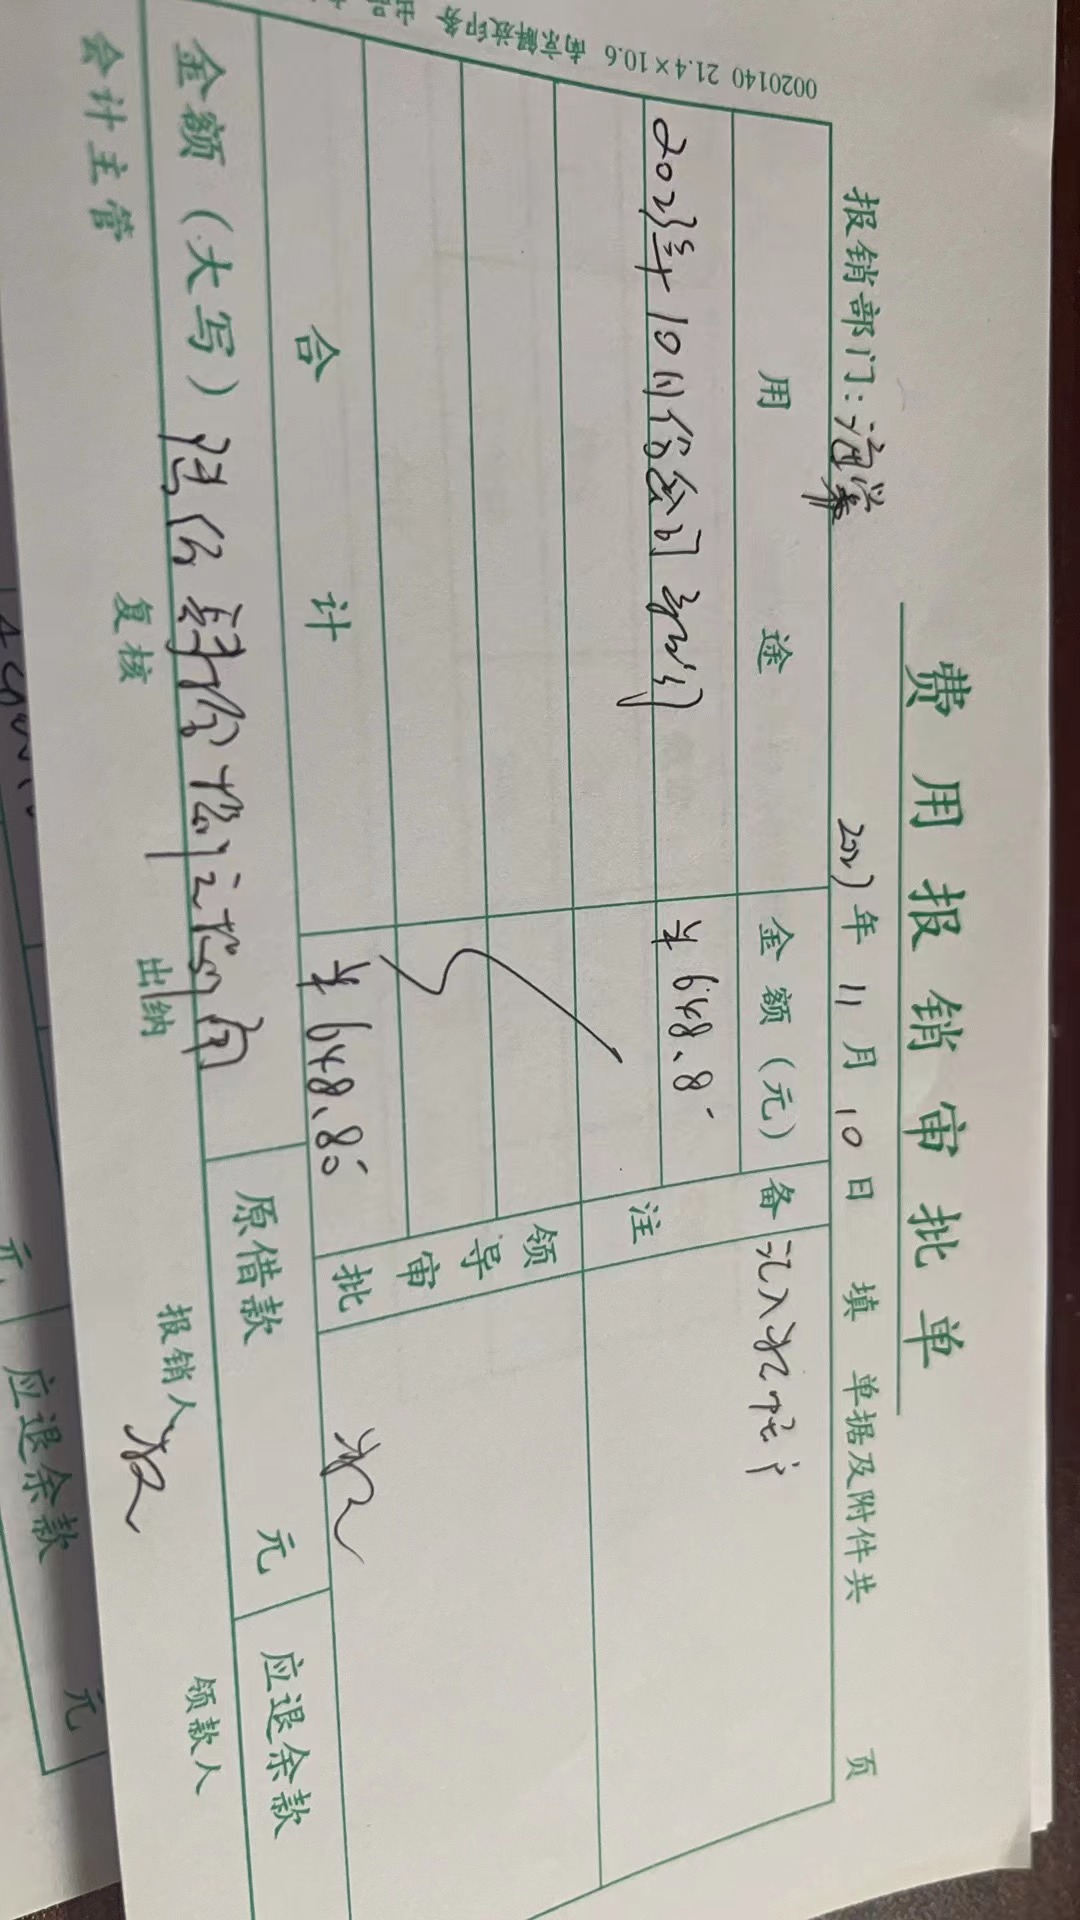 费用报销审批单
报销部门: 年 11 月 10 日 填 单据及附件共 页
用途 金额(元) 备注
2023年10月份公司 ¥648.8- 汇入
合计 ¥648.80
领导审批
金额(大写) 陆佰肆拾捌元捌角 原借款 元 应退余款
会计主管 复核 出纳 报销人 领款人
0020140 21.4×10.6 南京解放印务
元 应退余款 元